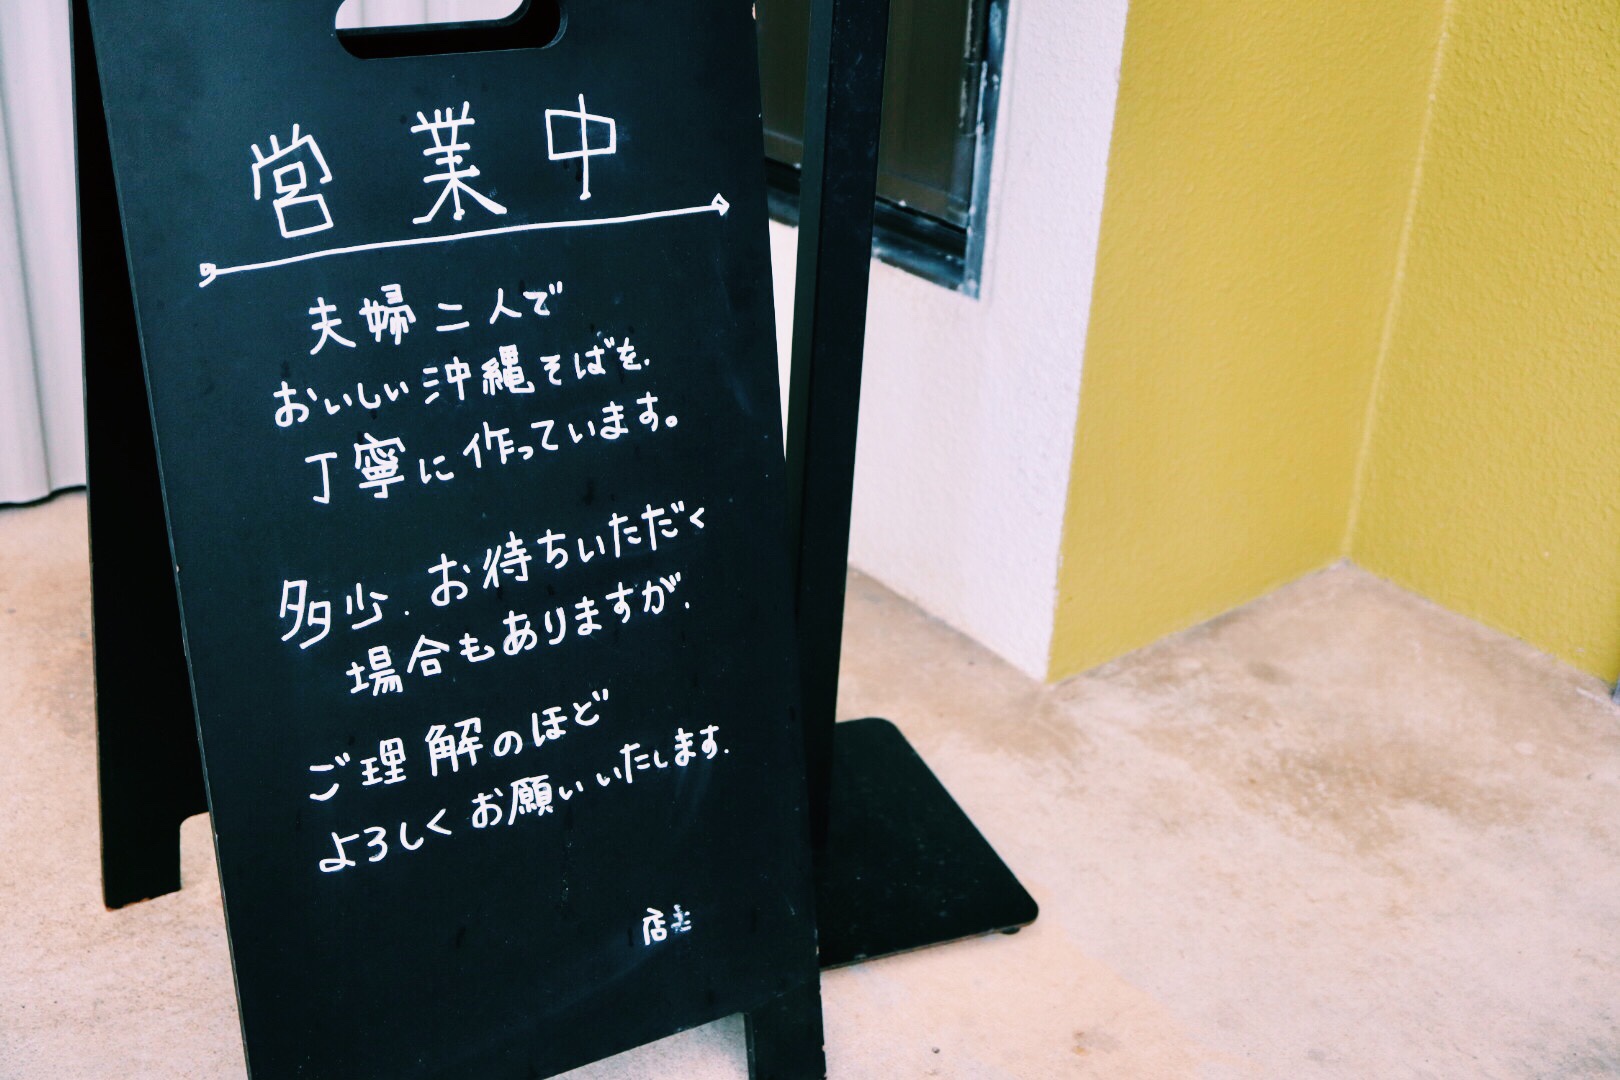 営業中
夫婦二人で
おいしい沖縄そばを、
丁寧に作っています。
多少、お待ちいただく
場合もありますが、
ご理解のほど
よろしくお願いいたします。
店主